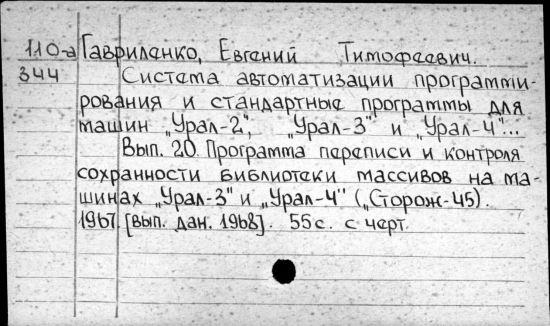 110-а Гавриленко, Евгений Тимофеевич.
344 Система автоматизации программи-
рования и стандартные программы для
машин „Урал-2", „Урал-3" и „Урал-4"...
Вып. 20. Программа переписи и контроля
сохранности библиотеки массивов на ма-
шинах „Урал-3" и „Урал-4" („Сторож-45).
1967. [вып. дан. 1968]. 55с. с черт.